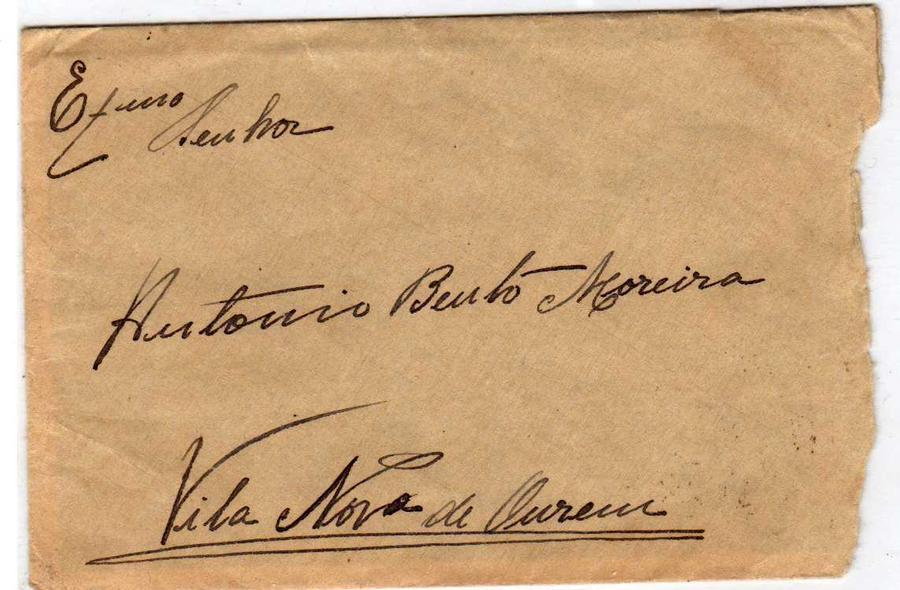 Exmo
Senhor
Antonio Bento Moreira
Vila Nova de Ourem